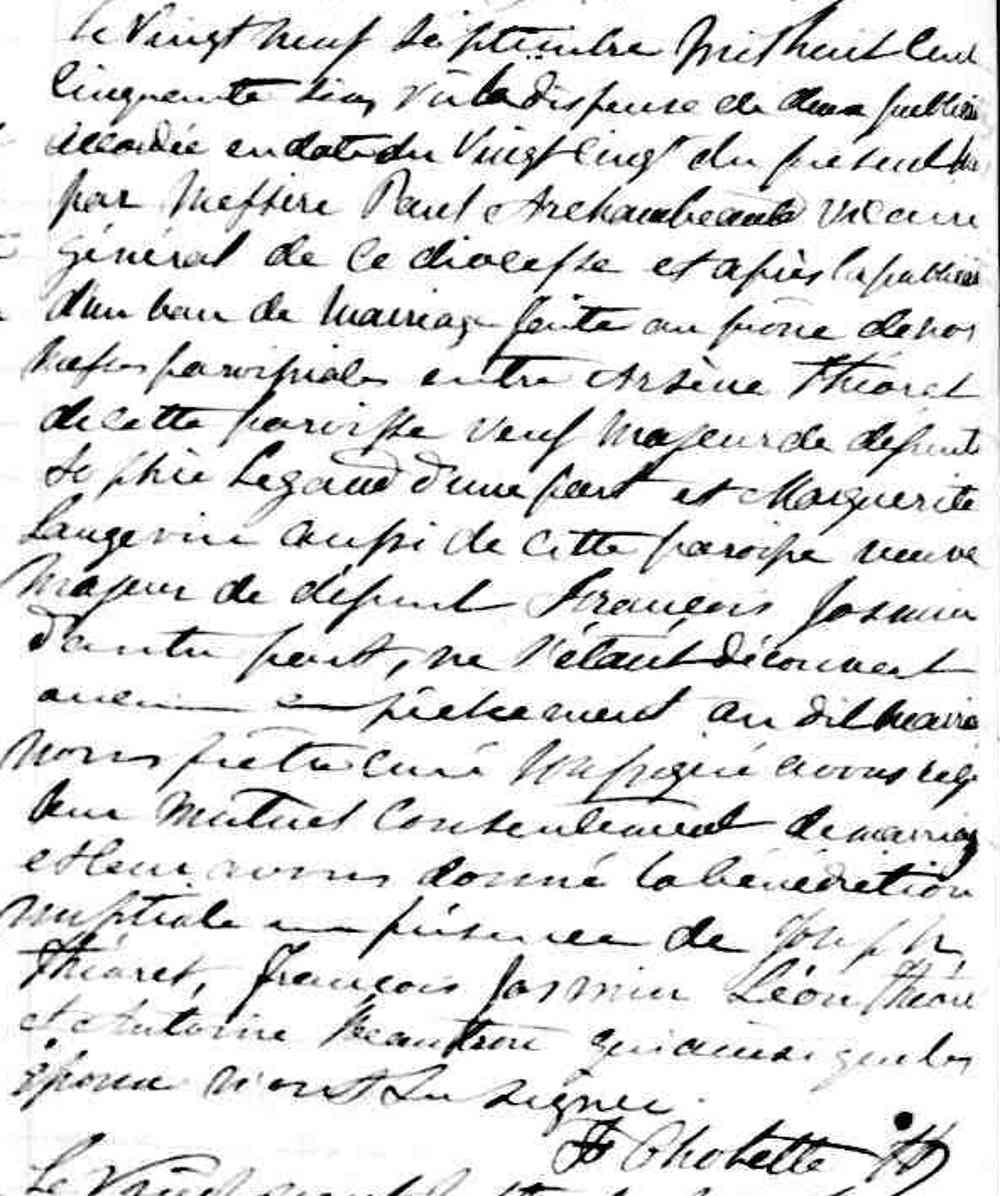 Le Vingt neuf Septembre Mil huit Cent
Cinquante Six, vû la dispense de deux public
accordée en date du Vingt Cinq du présent
par Messire Paul Archambeault Vicaire
général de ce diocesse et après la public
d'un ban de Mariage faite au prône de nos
Messes paroissiales entre Arsène Théoret
de cette paroisse veuf Majeur de défunte
Sophie Legaud d'une part et Marguerite
Langevin aussi de cette paroisse veuve
Majeur de défunt François Jasmin
d'autre part, ne s'étant découvert
aucun empêchement au dit mari
Nous prêtre curé Soussigné avons reçu
leur Mutuel Consentement de mariag
et leur avons donné la bénédiction
nuptiale en présence de Joseph
Théoret, François Jasmin Léon Théoré
et Antoine qui ainsi que les
époux n'ont su signer.
Chobette Ptre
Le Vingt